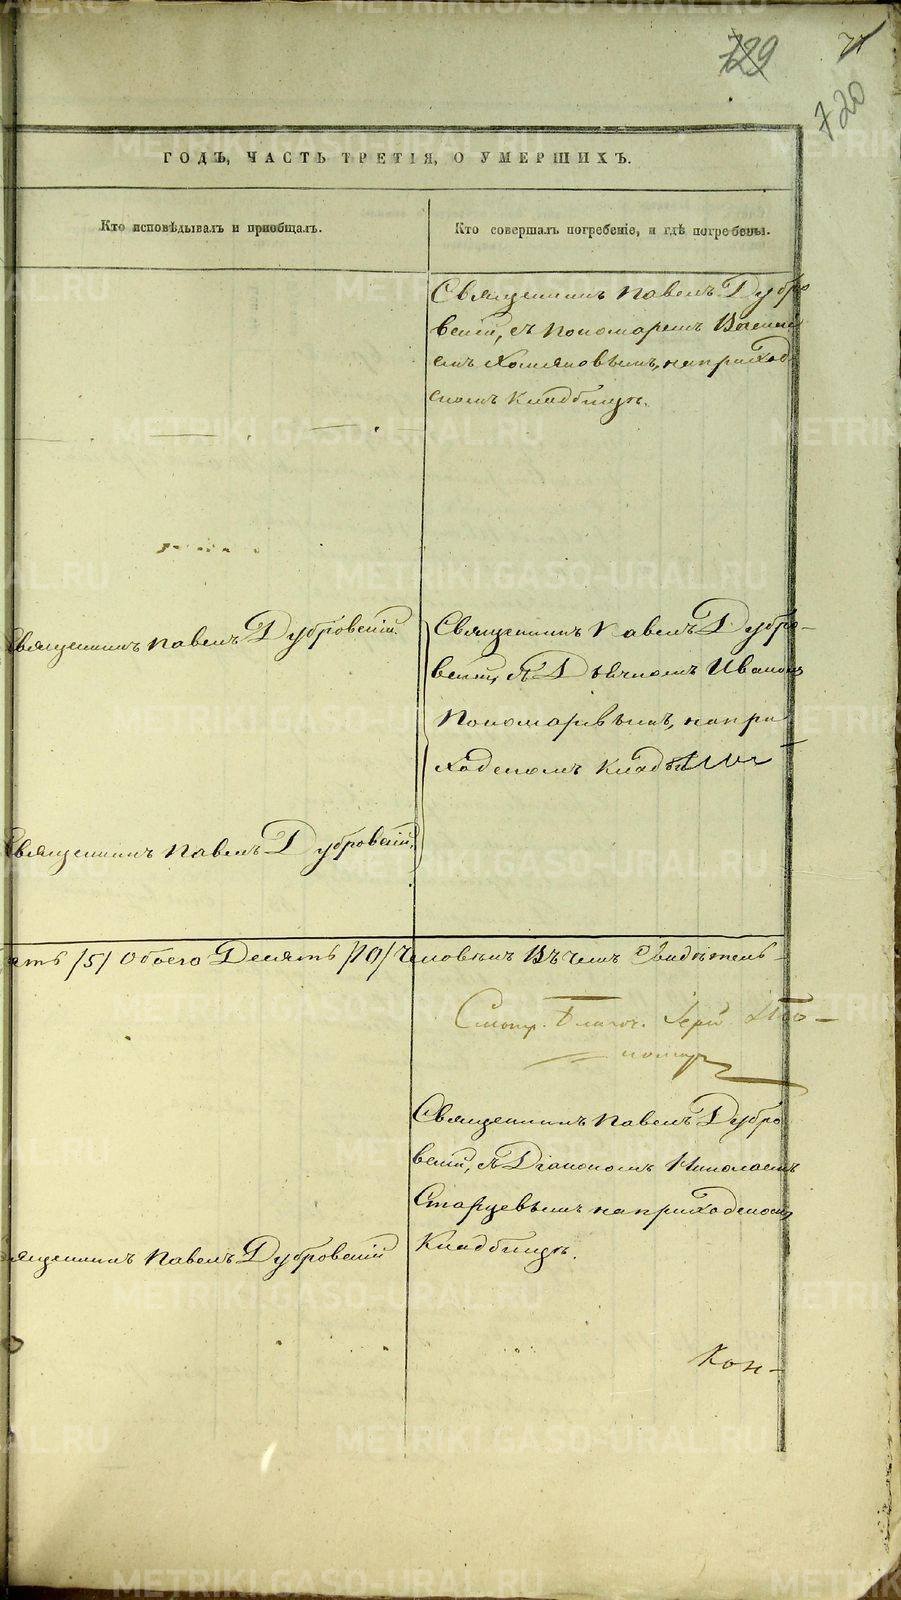 729
71
720
ГОДЪ, ЧАСТЬ ТРЕТІЯ, О УМЕРШИХЪ.
Кто исповѣдывалъ и пріобщалъ.
Кто совершалъ погребеніе, и гдѣ погребены.
Священникъ Павелъ Дубро
вскій, съ Пономаремъ
на приход
скомъ Кладбищѣ.
Священникъ Павелъ Дубровскій.
Священникъ Павелъ Дубро-
вскій, съ Дьячкомъ Иваномъ
Пономаревымъ, на при
ходскомъ Кладбищѣ
Священникъ Павелъ Дубровскій.
ять /5/ Обоего Десять /10/ Человѣкъ Въ чемъ Свидѣтель-
Смотр. Благоч. Іерей
Священникъ Павелъ Дубро
вскій, съ Діакономъ Николаемъ
Старцевымъ на приходскомъ
Кладбищѣ.
ященникъ Павелъ Дубровскій
Кон-
METRIKI.GASO-URAL.RU